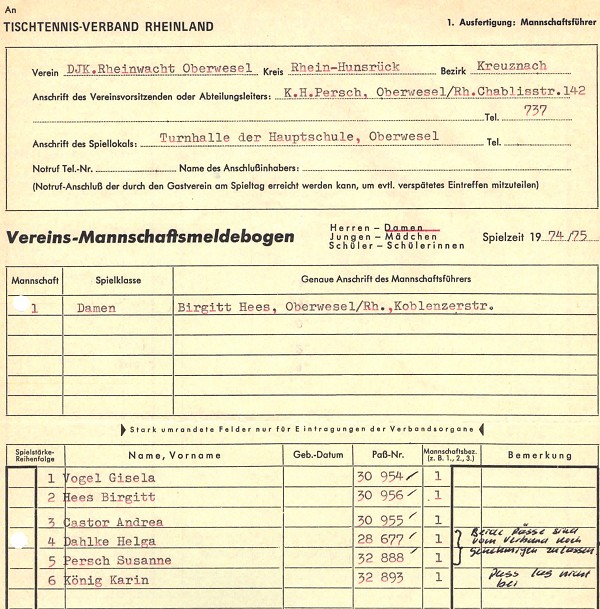 An
TISCHTENNIS-VERBAND RHEINLAND
1. Ausfertigung: Mannschaftsführer
Verein DJK.Rheinwacht Oberwesel Kreis Rhein-Hunsrück Bezirk Kreuznach
Anschrift des Vereinsvorsitzenden oder Abteilungsleiters: K.H.Persch, Oberwesel/Rh.Chablisstr.142
Tel. 737
Anschrift des Spiellokals: Turnhalle der Hauptschule, Oberwesel Tel.
Notruf Tel.-Nr. Name des Anschlußinhabers:
(Notruf-Anschluß der durch den Gastverein am Spieltag erreicht werden kann, um evtl. verspätetes Eintreffen mitzuteilen)
Vereins-Mannschaftsmeldebogen
Herren – Damen
Jungen – Mädchen
Schüler – Schülerinnen
Spielzeit 19 74/75
Mannschaft Spielklasse Genaue Anschrift des Mannschaftsführers
1 Damen Birgitt Hees, Oberwesel/Rh.,Koblenzerstr.
Stark umrandete Felder nur für Eintragungen der Verbandsorgane
Spielstärke-Reihenfolge Name, Vorname Geb.-Datum Paß-Nr. Mannschaftsbez. (z. B. 1., 2., 3.) Bemerkung
1 Vogel Gisela 30 954 1
2 Hees Birgitt 30 956 1
3 Castor Andrea 30 955 1
4 Dahlke Helga 28 677 1
5 Persch Susanne 32 888 1
6 König Karin 32 893 1
Beide Pässe sind
vom Verband noch
genehmigen zulassen
Pass lag nicht
bei